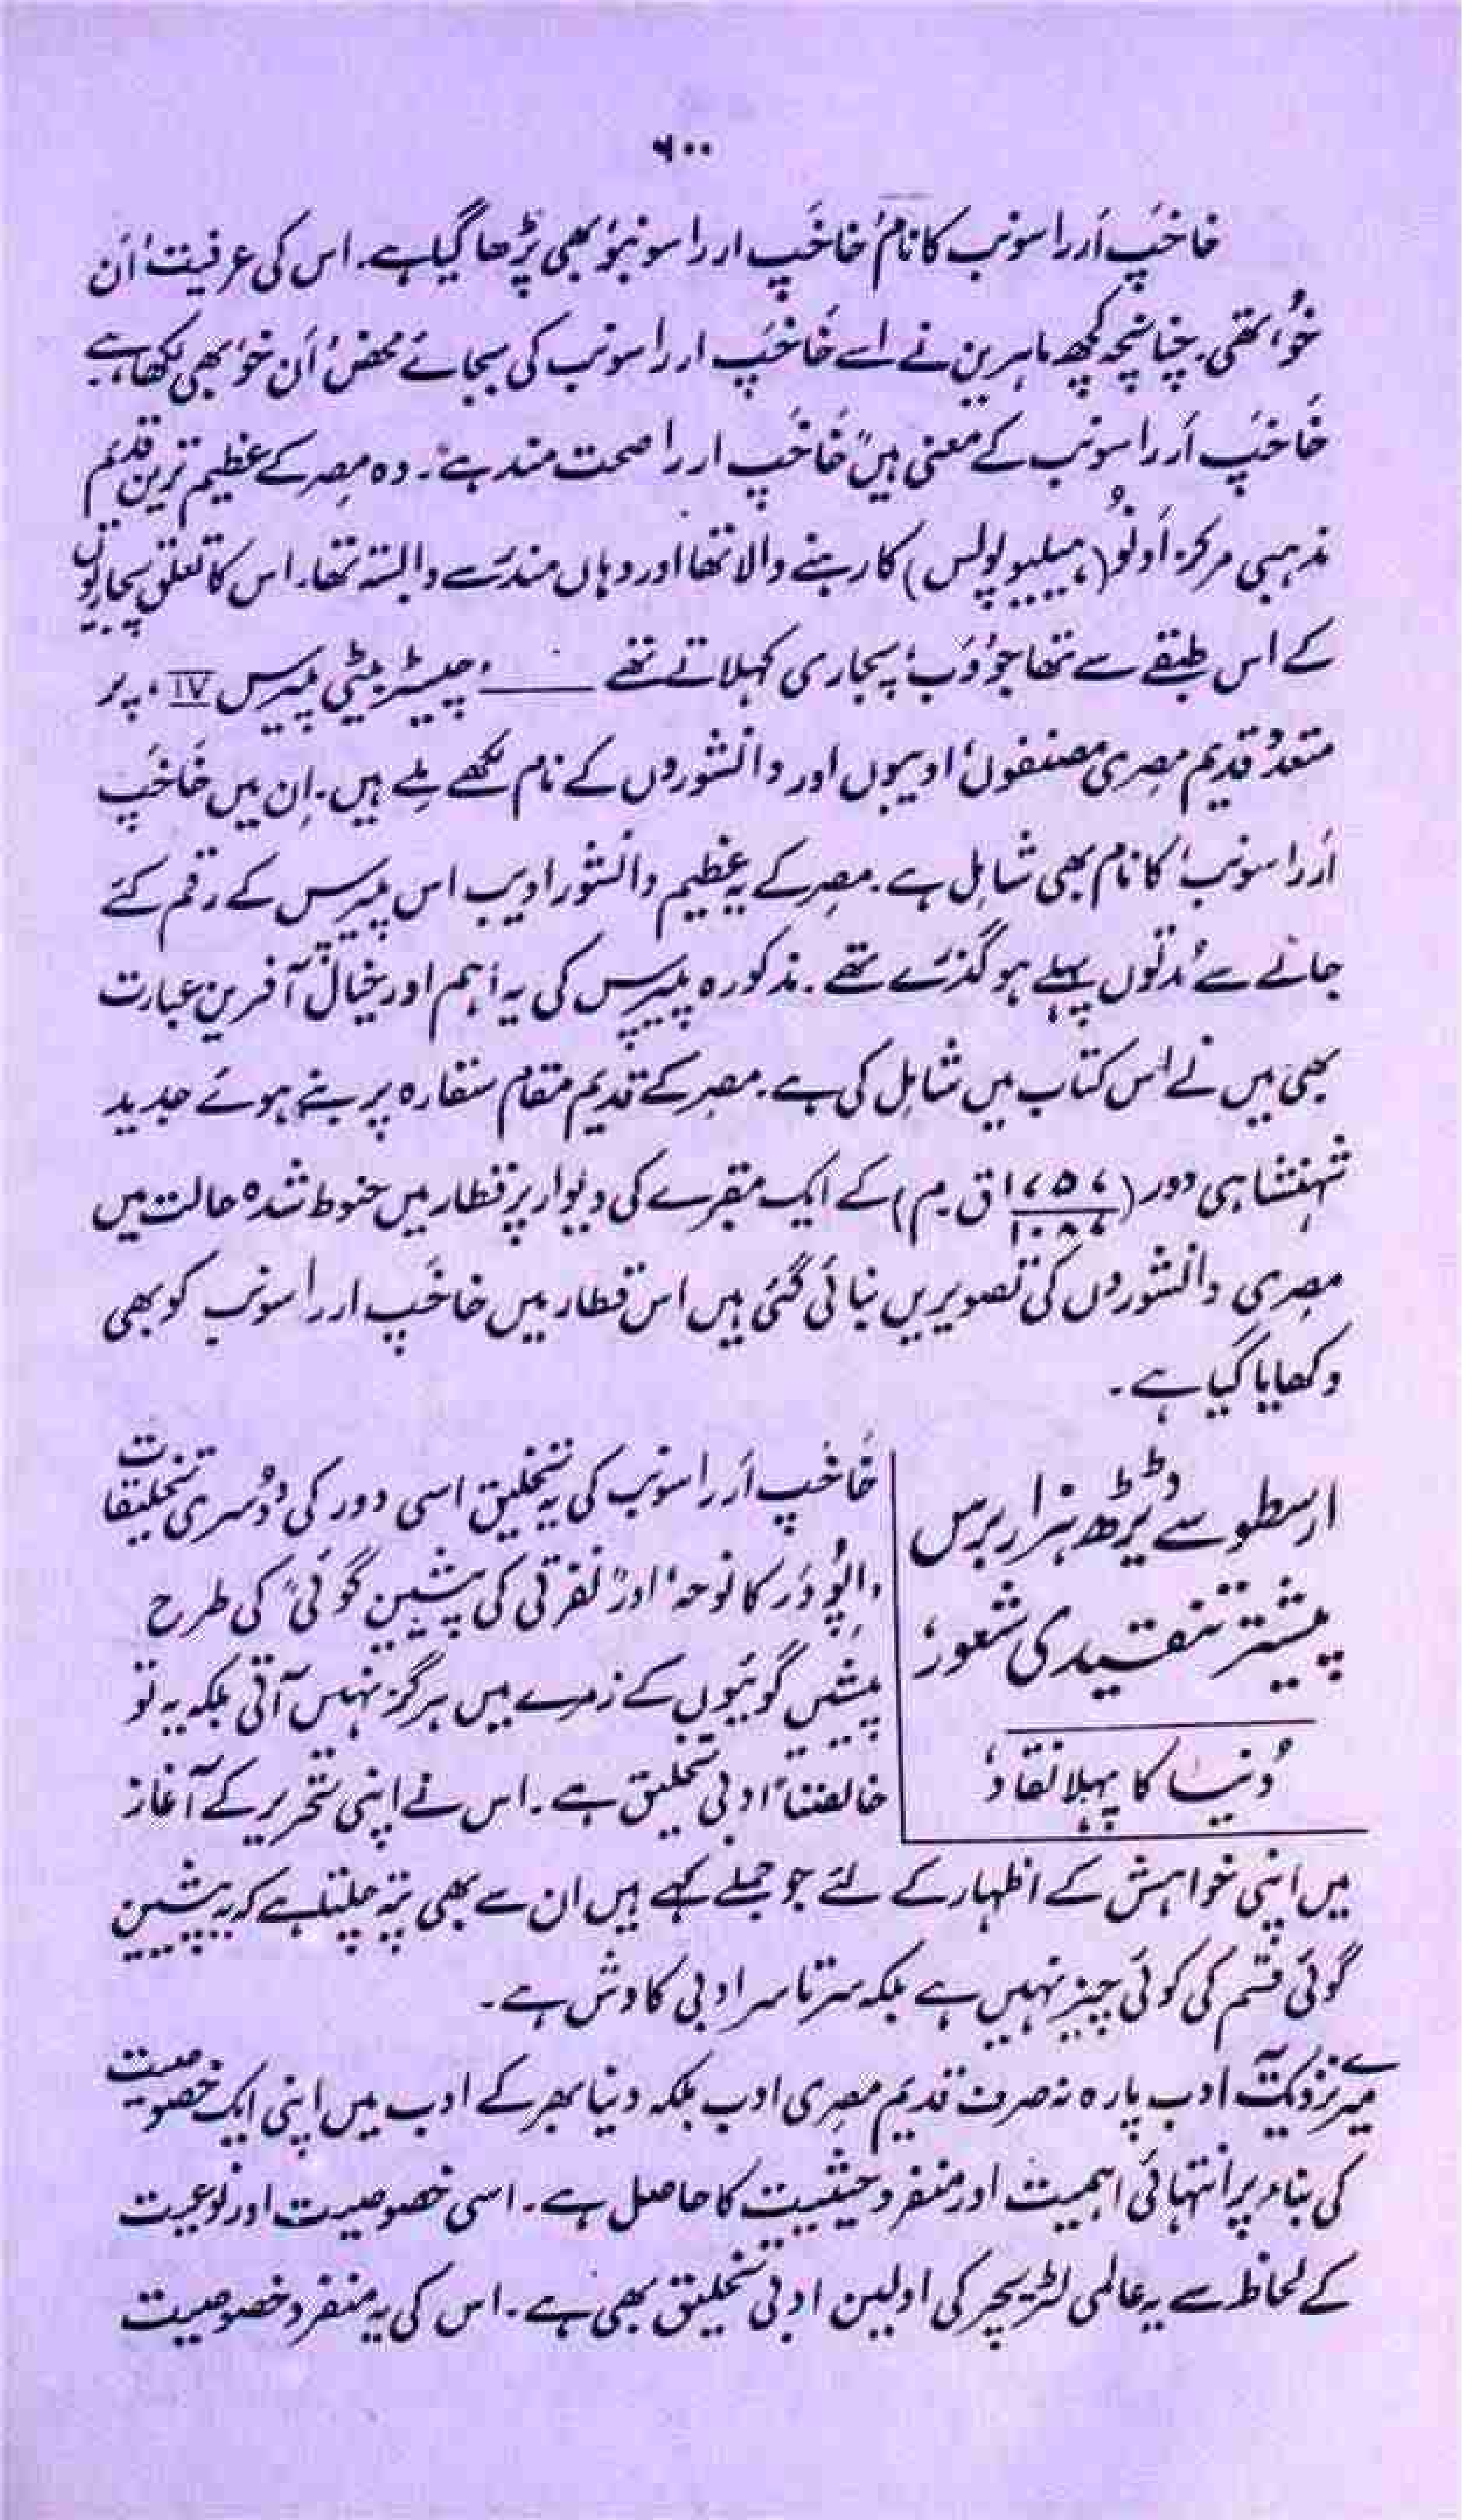 ۶۰۰
خاخَپ اَررا سونب کا نام ’خاخَپ اررا سونبو‘ بھی پڑھا گیا ہے۔ اس کی عرفیت ’اَن
خو‘ تھی۔ چنانچہ کچھ ماہرین نے اسے خَاخَپ اررا سونب کی بجائے محض ’اَن خو‘ بھی لکھا ہے۔
خَاخَپ اَررا سونب کے معنی ہیں ”خَاخَپ اررا صحت مند ہے“۔ وہ مصر کے عظیم ترین قدیم
مذہبی مرکز اَونُو (ہیلیوپولس) کا رہنے والا تھا اور وہاں مندر سے وابستہ تھا۔ اس کا تعلق پجاریوں
کے اس طبقے سے تھا جو ’وَب‘ پجاری کہلاتے تھے ــــــ ’چیسٹر بیٹی پیپرس IV‘ پر
متعدد قدیم مصری مصنفوں، ادیبوں اور دانشوروں کے نام لکھے ملے ہیں۔ اِن میں خَاخَپ
اَررا سونب‘ کا نام بھی شامِل ہے۔ مصر کے یہ عظیم دانشور ادیب اس پیپرس کے رقم کئے
جانے سے مُدتوں پہلے ہو گذرے تھے۔ مذکورہ پیپرس کی یہ اہم اور خیال آفرین عبارت
بھی میں نے اس کتاب میں شامِل کی ہے۔ مصر کے قدیم مقام سقارہ پر بنے ہوئے جدید
شہنشاہی دور (۱۵۶۷/۱۰۸۷ ق۔م) کے ایک مقبرے کی دیوار پر قطار میں حنوط شدہ حالت میں
مصری دانشوروں کی تصویریں بنائی گئی ہیں اس قطار میں خاخَپ اررا سونب کو بھی
دکھایا گیا ہے۔
ارسطو سے ڈیڑھ ہزار برس
پیشتر تنقیدی شعور،
دُنیا کا پہلا نقاد،
خَاخَپ اَررا سونب کی یہ تخلیق اسی دور کی دُوسری تخلیقات
’اِپُو وَر کا نوحہ‘ اور ”نفرتی کی پیشین گوئی“ کی طرح
پیشیں گوئیوں کے زمرے میں ہرگز نہیں آتی بلکہ یہ تو
خالصتاً ادبی تخلیق ہے۔ اس نے اپنی تحریر کے آغاز
میں اپنی خواہش کے اظہار کے لئے جو جملے کہے ہیں ان سے بھی پتہ چلتا ہے کہ یہ پیشین
گوئی قسم کی کوئی چیز نہیں ہے بلکہ سرتاسر ادبی کاوش ہے۔
میرے نزدیک یہ ادب پارہ نہ صرف قدیم مصری ادب بلکہ دنیا بھر کے ادب میں اپنی ایک خصوصیت
کی بناء پر انتہائی اہمیت اور منفرد حیثیت کا حامل ہے۔ اسی خصوصیت اور نوعیت
کے لحاظ سے یہ عالمی لٹریچر کی اولین ادبی تخلیق بھی ہے۔ اس کی یہ منفرد خصوصیت